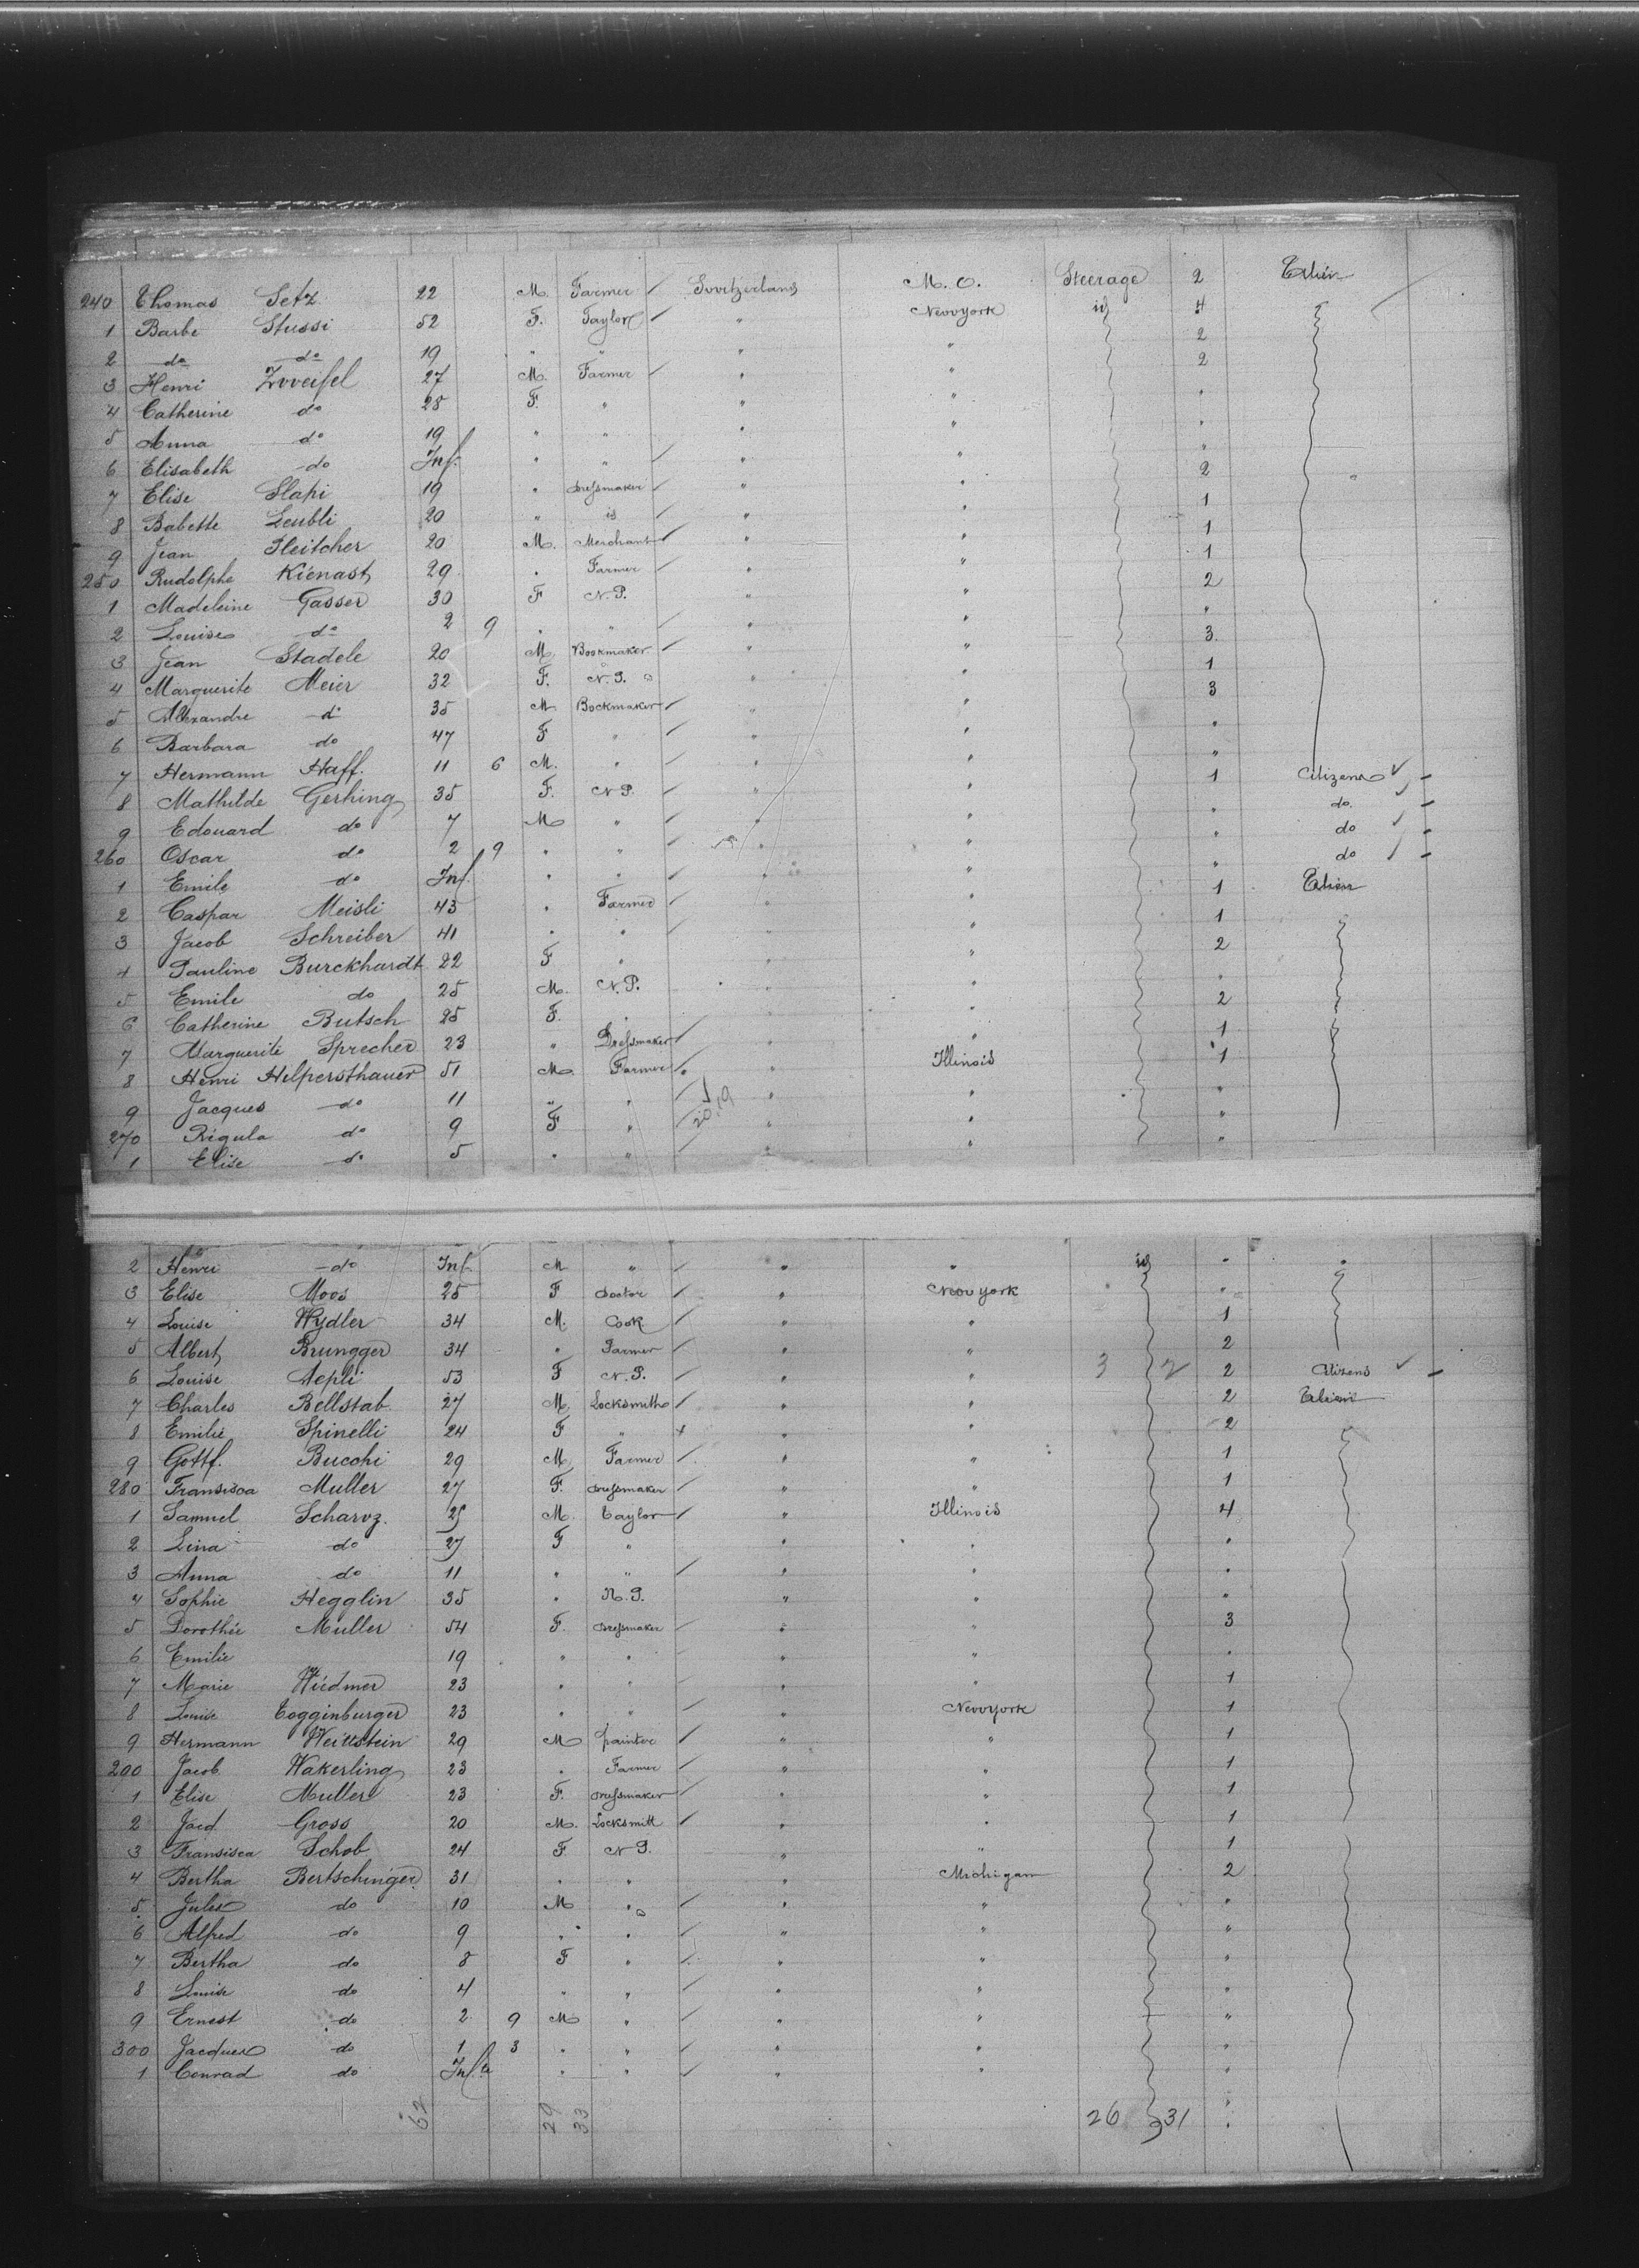 240 Thomas Setz 22 M. Farmer Switzerland M. O. Steerage 2 Alien
1 Barbe Stussi 52 F. Taylor " Newyork id 4
2 do do 19 " " " " 2
3 Henri Zweifel 27 M. Farmer " " 2
4 Catherine do 28 F. " " " "
5 Anna do 19 " " " " "
6 Elisabeth do Inf. " " " " "
7 Elise Slapi 19 " Dressmaker " " 2
8 Babette Leubli 20 " id " " 1
9 Jean Fleitcher 20 M. Merchant " " 1
250 Rudolphe Kienast 29 " Farmer " " 1
1 Madeleine Gasser 30 F N. P. " " 2
2 Louise do 2 9 " " " " "
3 Jean Stadele 20 M. Bookmaker " " 3
4 Marguerite Meier 32 F. N. P. " " 1
5 Alexandre do 35 M Bockmaker " " 3
6 Barbara do 47 F " " " "
7 Hermann Haff. 11 6 M. " " " "
8 Mathilde Gerhing 35 F. N P. " " 1 Citizens
9 Edouard do 7 M " " " " do
260 Oscar do 2 9 " " " " " do
1 Emile do Inf. " " " " " do
2 Caspar Meisli 43 " Farmer " " 1 Alien
3 Jacob Schreiber 41 " " " " 1
4 Pauline Burckhardt 22 F " " " 2
5 Emile do 25 M. N. P. " " "
6 Catherine Butsch 25 F. " " " 2
7 Marguerite Sprecher 23 " Dressmaker " " 1
8 Henri Hilpersthauer 51 M. Farmer " Illinois 1
9 Jacques do 11 " " " " "
270 Rigula do 9 F " " " "
1 Elise do 5 " " " " "
2 Henri do Inf. M " " " id " "
3 Elise Moos 25 F Doctor " Newyork "
4 Louise Wydler 34 M. Cook " " 1
5 Albert Brungger 34 " Farmer " " 2
6 Louise Aepli 53 F N. P. " " 3 2 2 Citizens
7 Charles Bellstab 27 M. Locksmith " " 2 Alien
8 Emilie Spinelli 24 F " " " 2
9 Gottf. Bucchi 29 M. Farmer " " 1
280 Fransisca Muller 27 F. Dressmaker " " 1
1 Samuel Scharvz. 25 M. Taylor " Illinois 4
2 Lina do 27 F " " " "
3 Anna do 11 " " " " "
4 Sophie Hegglin 35 " N. P. " " "
5 Dorothée Muller 54 F. Dressmaker " " 3
6 Emilie 19 " " " " "
7 Marie Wiedmer 23 " " " " 1
8 Louise Togginburger 23 " " " Newyork 1
9 Hermann Weittstein 29 M painter " " 1
200 Jacob Wakerling 23 " Farmer " " 1
1 Elise Muller 23 F. Dressmaker " " 1
2 Jacd Gross 20 M. Locksmitt " " 1
3 Fransisca Schob 24 F N P. " " 1
4 Bertha Bertschinger 31 " " " Michigan 2
5 Jules do 10 M " " " "
6 Alfred do 9 " " " " "
7 Bertha do 8 F " " " "
8 Louise do 4 " " " " "
9 Ernest do 2 9 M " " " "
300 Jacques do 1 3 " " " " "
1 Conrad do Inf. " " " " "
62 29 33 26 31